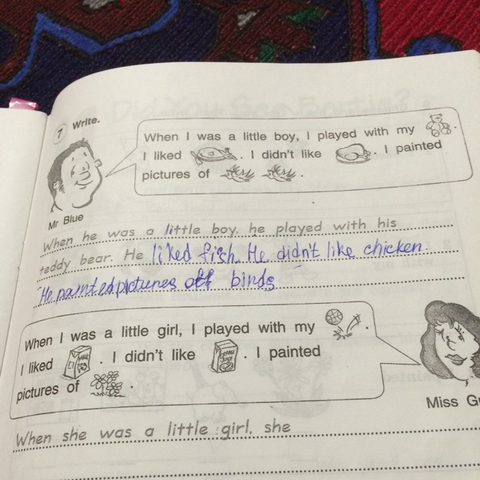 7 Write.
When I was a little boy, I played with my .
I liked . I didn't like . I painted
pictures of .
Mr Blue
When he was a little boy, he played with his
teddy bear. He liked fish. He didn't like chicken.
He painted pictures off birds
When I was a little girl, I played with my .
I liked . I didn't like . I painted
pictures of .
When she was a little girl, she